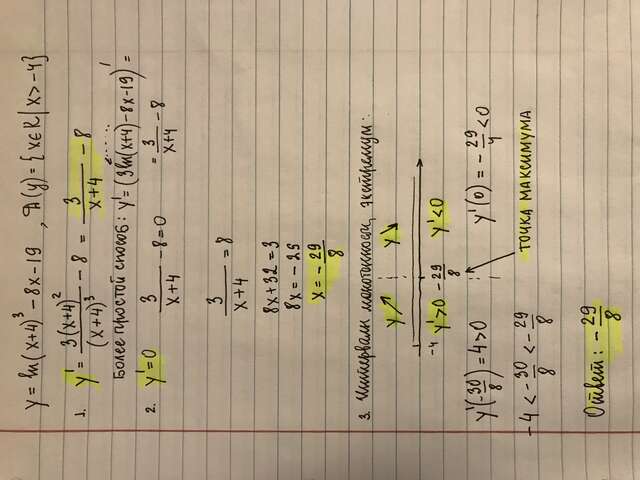 y = ln(x+4)³ - 8x - 19 , D(y) = {x∈R | x > -4}
1. y' = 3(x+4)²/(x+4)³ - 8 = 3/(x+4) - 8
Более простой способ: y' = (3ln(x+4) - 8x - 19)' =
= 3/(x+4) - 8
2. y' = 0 3/(x+4) - 8 = 0
3/(x+4) = 8
8x + 32 = 3
8x = -29
x = -29/8
3. Интервалы монотонности, экстремум:
y↗ y↘
-4 y' > 0 -29/8 y' < 0
y'(-30/8) = 4 > 0 y'(0) = -29/4 < 0
-4 < -30/8 < -29/8
точка максимума
Ответ: -29/8